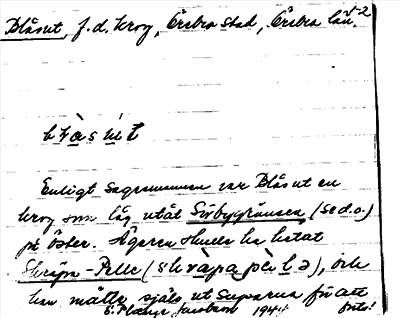 Blåsut, f.d. krog, Örebro stad, Örebro län.
blåsút
Enligt sagesmannen var Blåsut en
krog som låg utåt Sörbygränsen (se d.o.)
på öster. Ägaren skulle ha hetat
Skräpa-Pelle (skràpa pèlə), och
han mätte själv ut suparna för att
S. Plænge Jacobson 1944